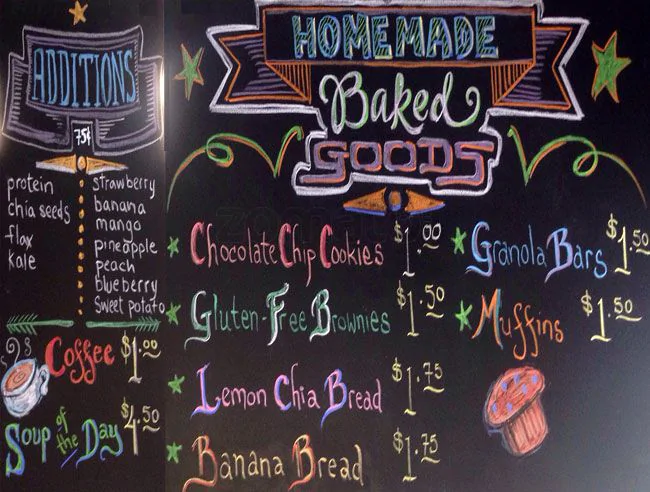 ADDITIONS
75¢
protein
chia seeds
flax
kale
strawberry
banana
mango
pineapple
peach
blueberry
sweet potato
Coffee $1.00
Soup of the Day $4.50
HOMEMADE
Baked
GOODS
Chocolate Chip Cookies $1.00
Gluten-Free Brownies $1.50
Lemon Chia Bread $1.75
Banana Bread $1.75
Granola Bars $1.50
Muffins $1.50